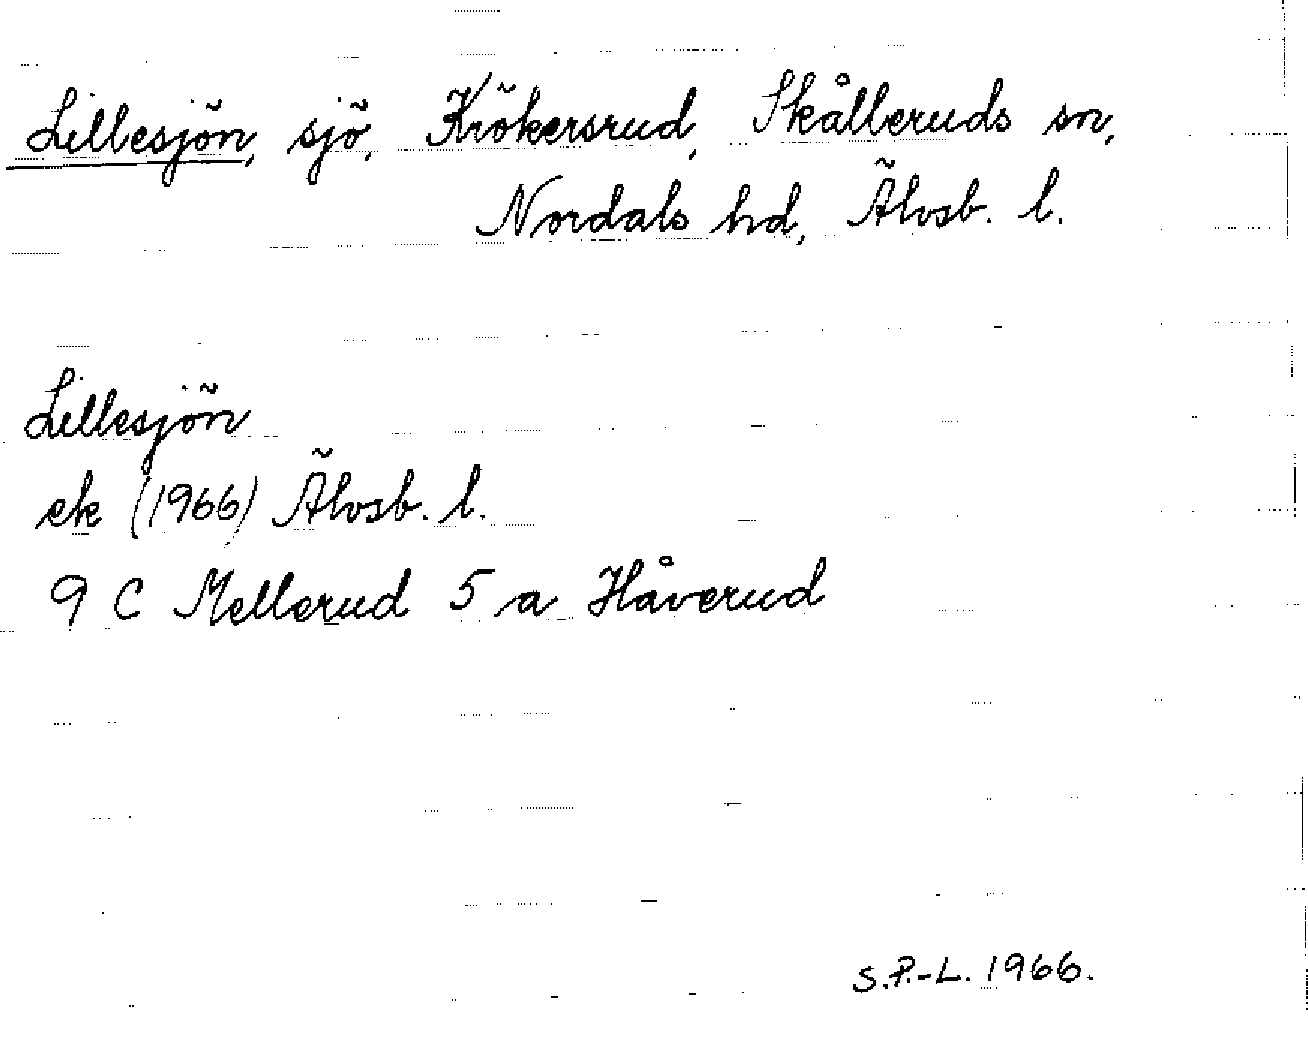 Lillesjön, sjö, Krökersrud, Skålleruds sn,
Nordals hd, Älvsb. l.
Lillesjön
ek (1966) Älvsb. l.
9 C Mellerud 5 a Håverud
S.P.-L. 1966.